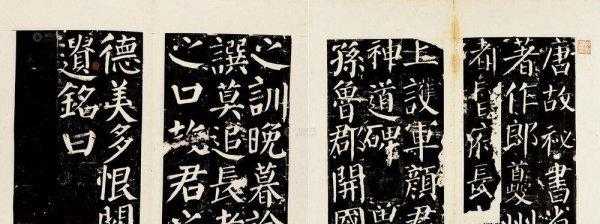 唐故祕書省
著作郎夔州
都督府長
上護軍顏君
神道碑 曾
孫魯郡開國
之訓晚暮論
譔莫追長老
之口故君之
德美多恨闕
遺銘曰